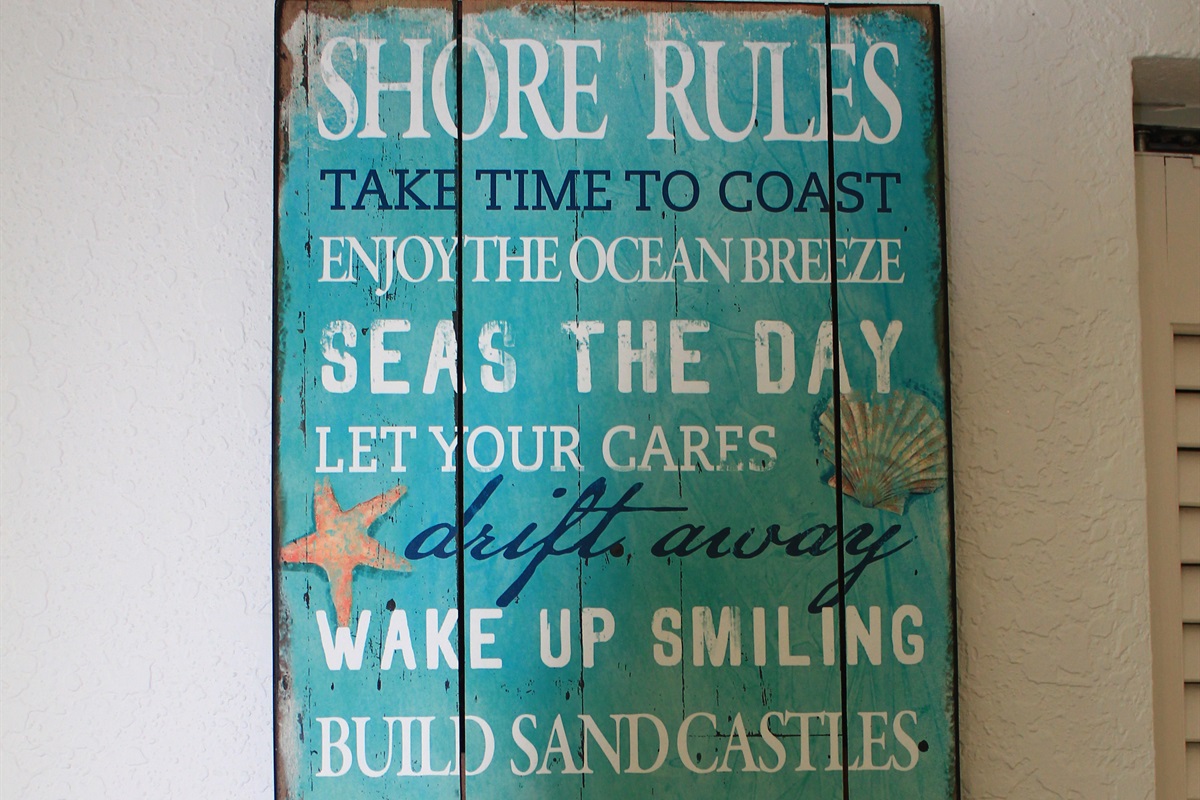 SHORE RULES
TAKE TIME TO COAST
ENJOY THE OCEAN BREEZE
SEAS THE DAY
LET YOUR CARES
drift away
WAKE UP SMILING
BUILD SANDCASTLES